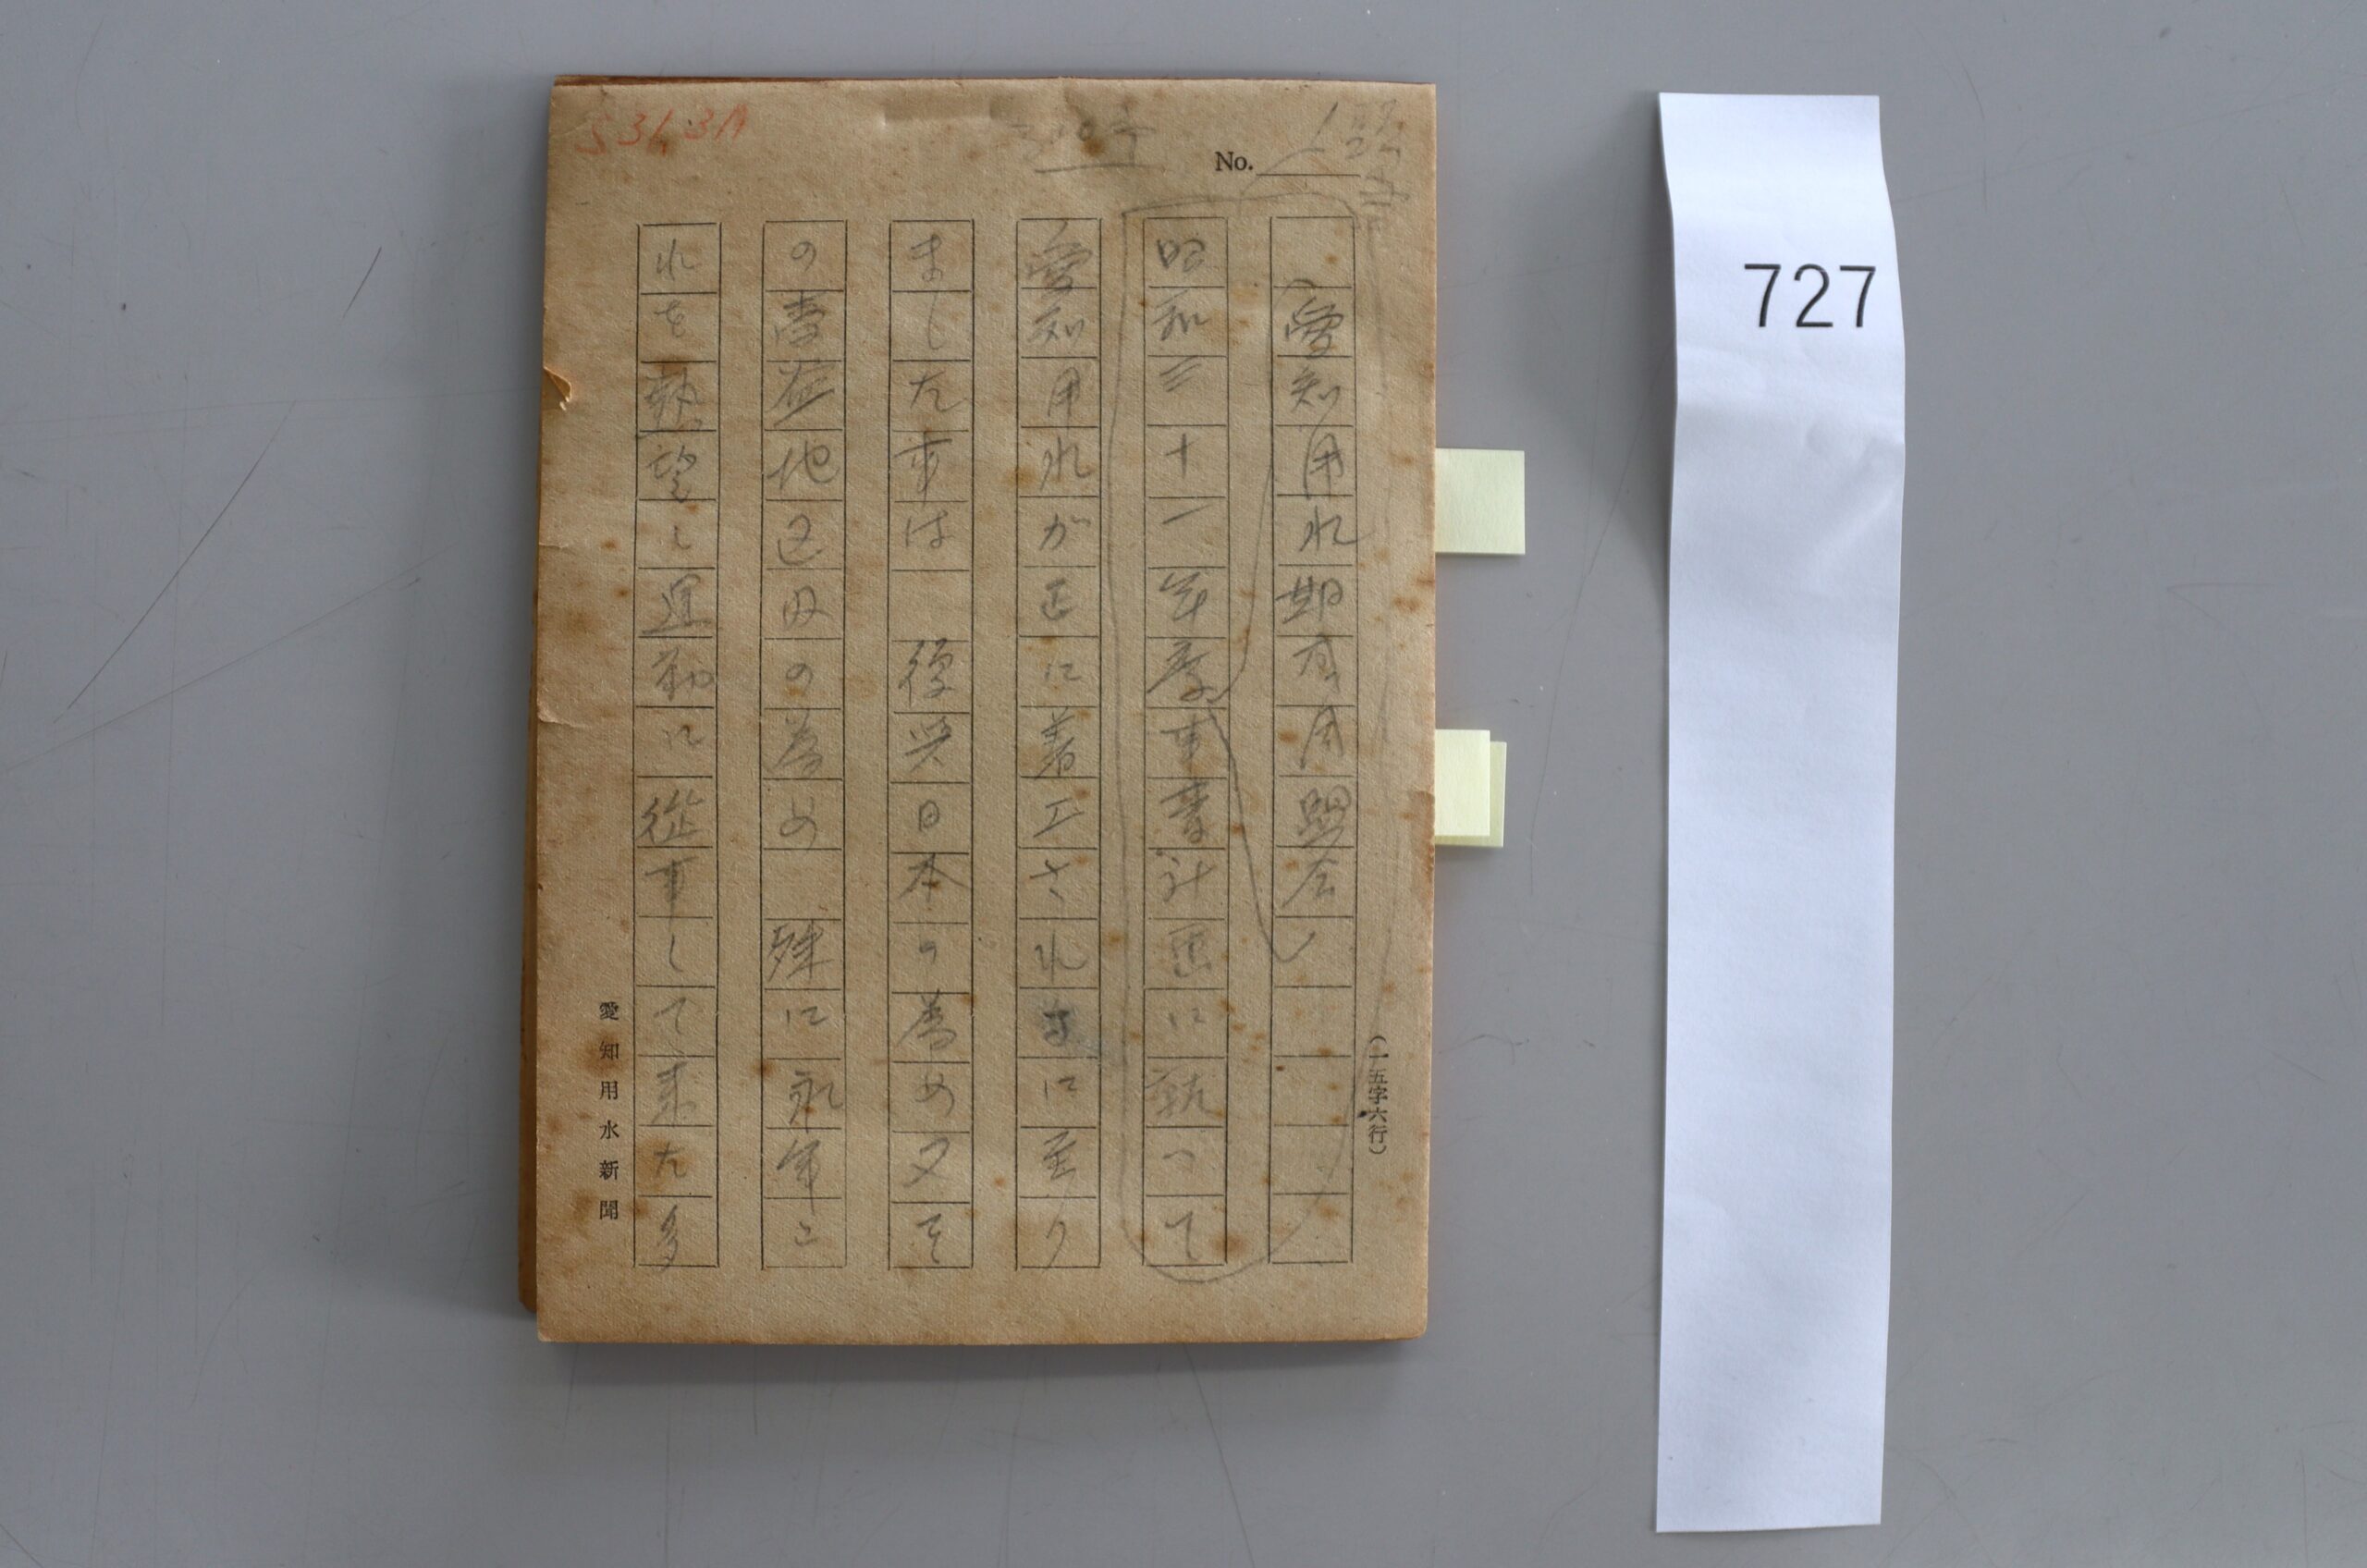 S31.3月
No.
愛知用水期成同盟会
昭和三十一年度事業計画に就いて
愛知用水が正に着工されるに至り
ました事は 復興日本の為め又そ
の受益地区民の為め 殊に永年こ
れを熱望し運動に従事して来た多
(一五字六行)
愛知用水新聞
727